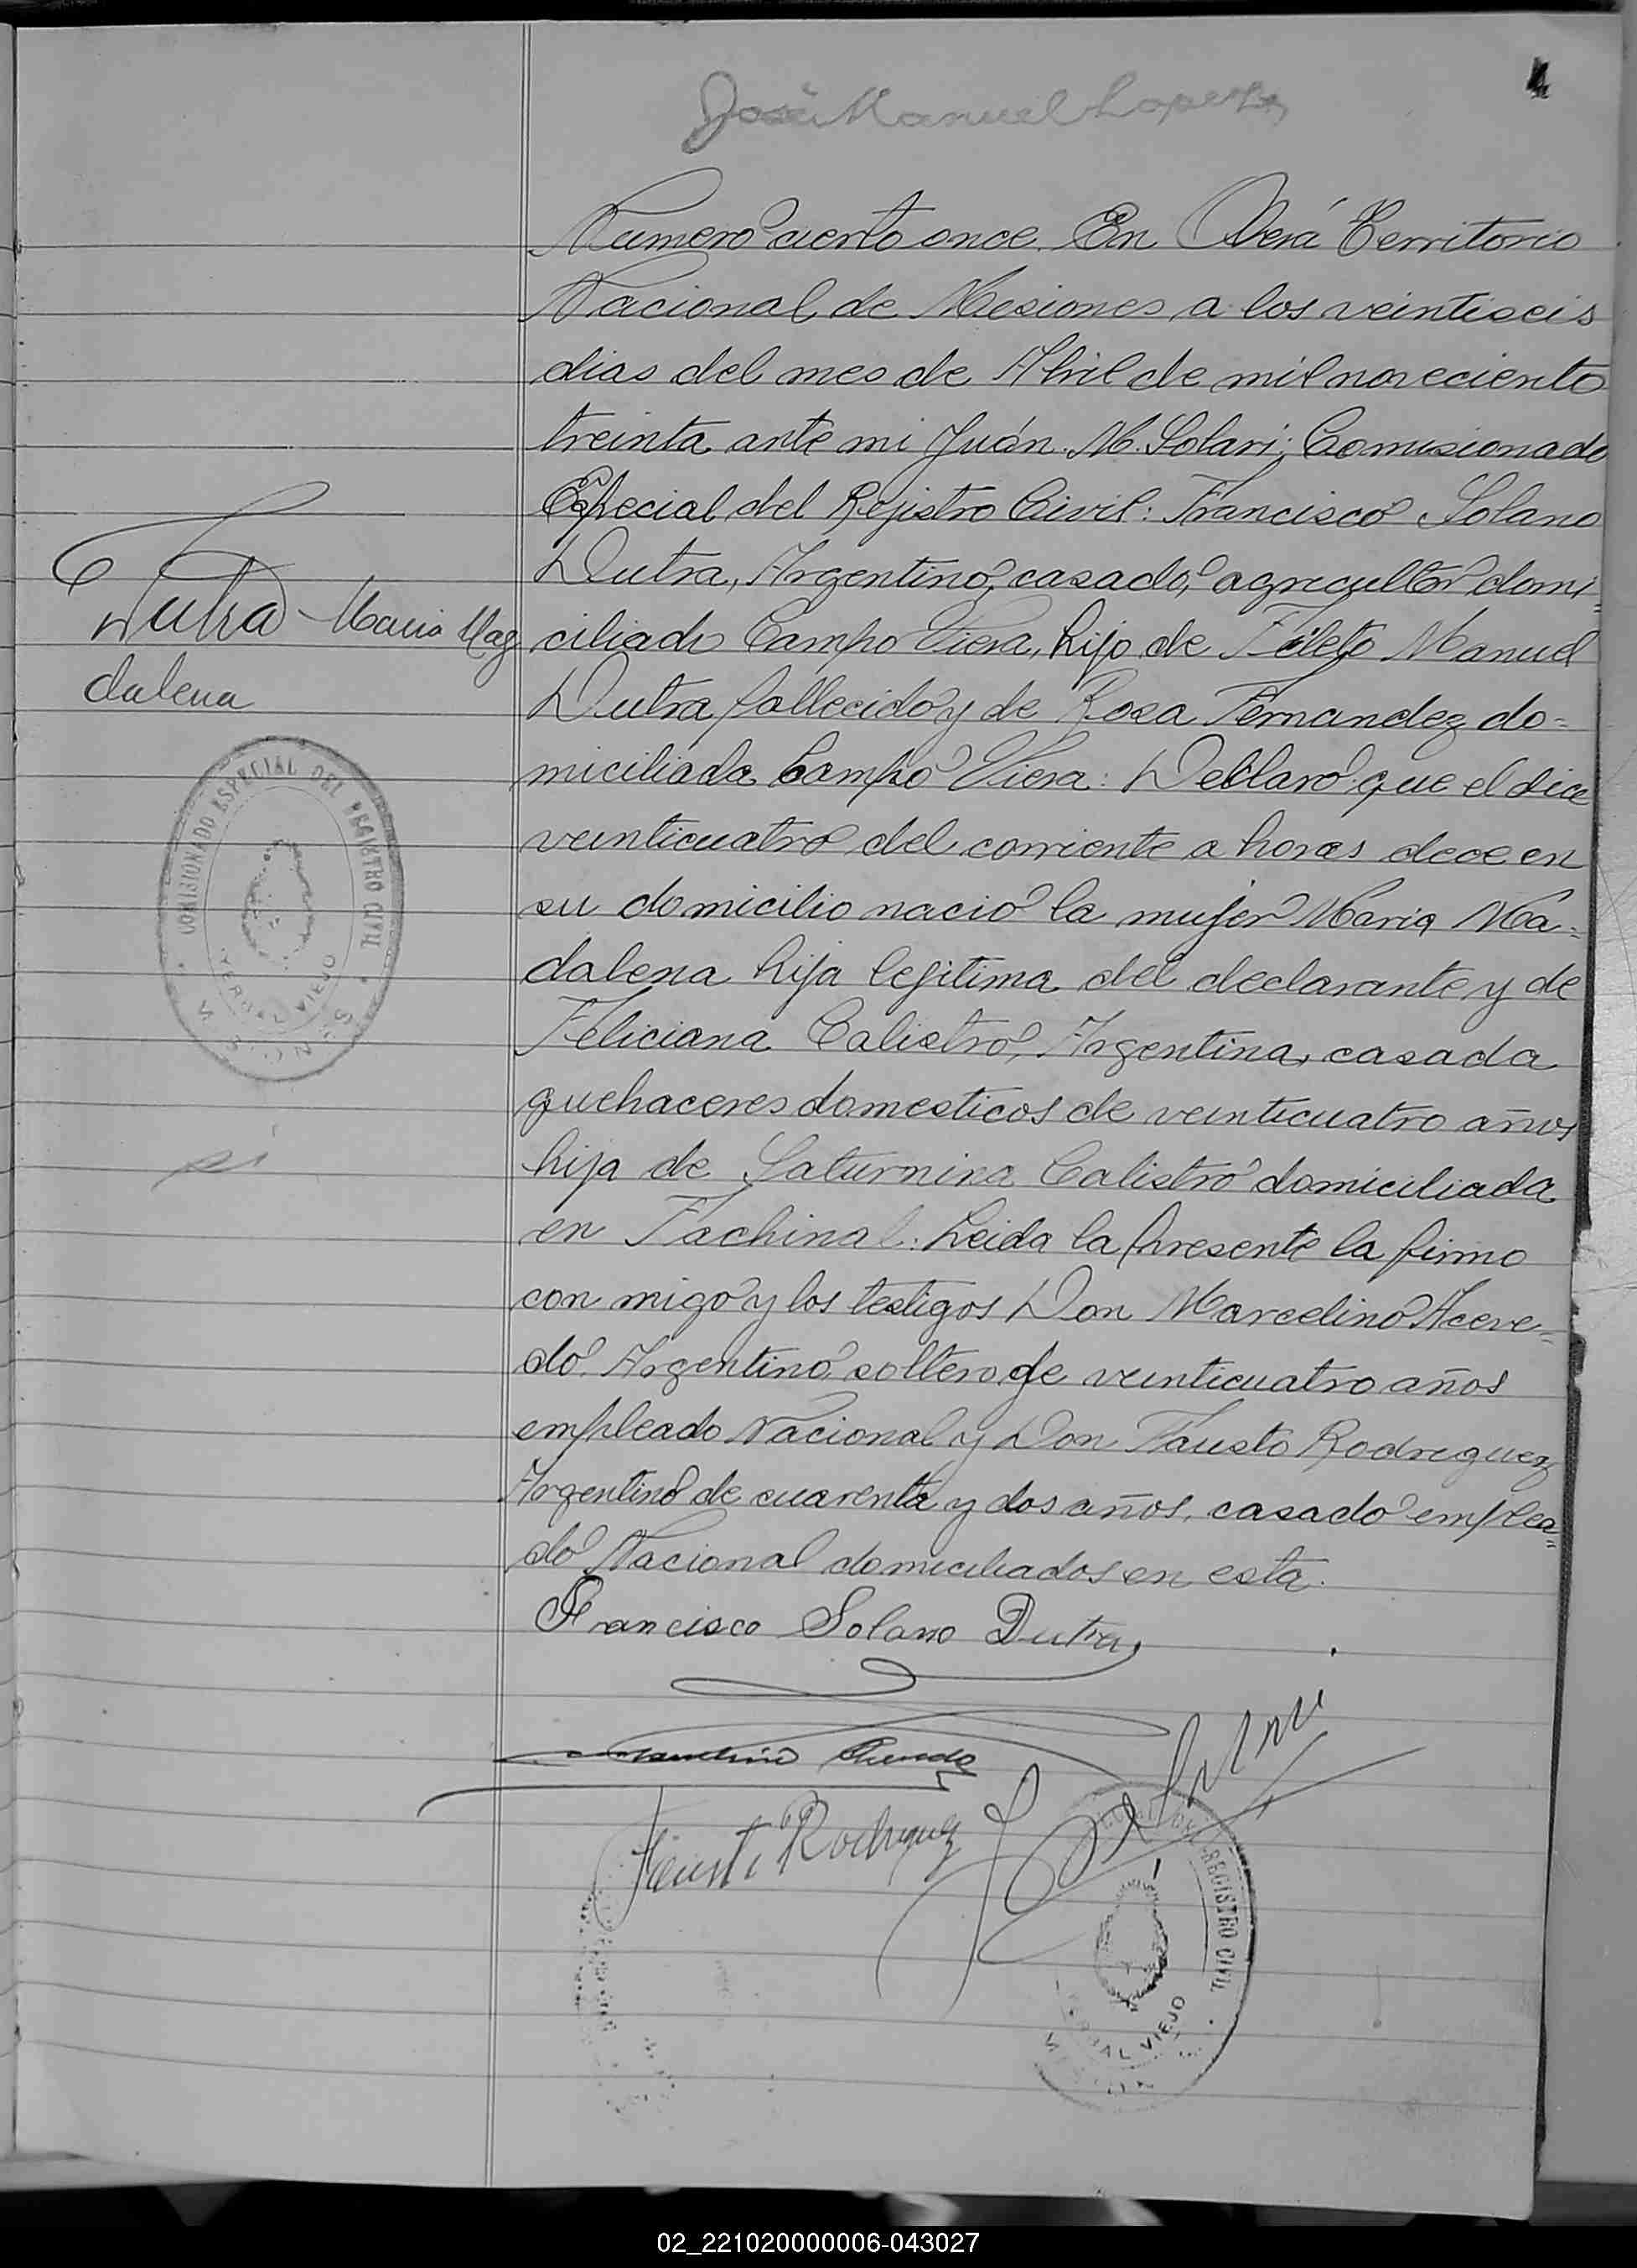 4
José Manuel Lopez
Numero ciento once. En Oberá Territorio
Nacional de Misiones a los veintiseis
dias del mes de Abril de mil noveciento
treinta ante mi Juán. M. Solari; Comisionado
Especial del Rejistro Civil: Francisco Solano
Dutra, Argentino, casado, agricultor domi=
ciliado Campo Viera, hijo de Fileto Manuel
Dutra fallecido y de Rosa Fernandez do=
miciliada Campo Viera: Declaro que el dice
veinticuatro del corriente a horas dece en
su domicilio nació la mujer Maria Ma=
dalena hija lejitima del declarante y de
Feliciana Calistro, Argentina, casada
quehaceres domesticos de veinticuatro años
hija de Saturnina Calistro domiciliada
en Fachinal: Leida la presente la firmo
con migo y los testigos Don Marcelino Aceve=
do. Argentino, soltero de veinticuatro años
empleado Nacional y Don Fausto Rodriguez
Argentino de cuarenta y dos años, casado emplea=
do Nacional domiciliados en esta.
Francisco Solano Dutra
Marcelino Acevedo
Fausto Rodriguez
Dutra - Maria Mag
dalena
COMISIONADO ESPECIAL DEL REGISTRO CIVIL
YERBAL VIEJO
MISIONES
REGISTRO CIVIL
YERBAL VIEJO
02_221020000006-043027